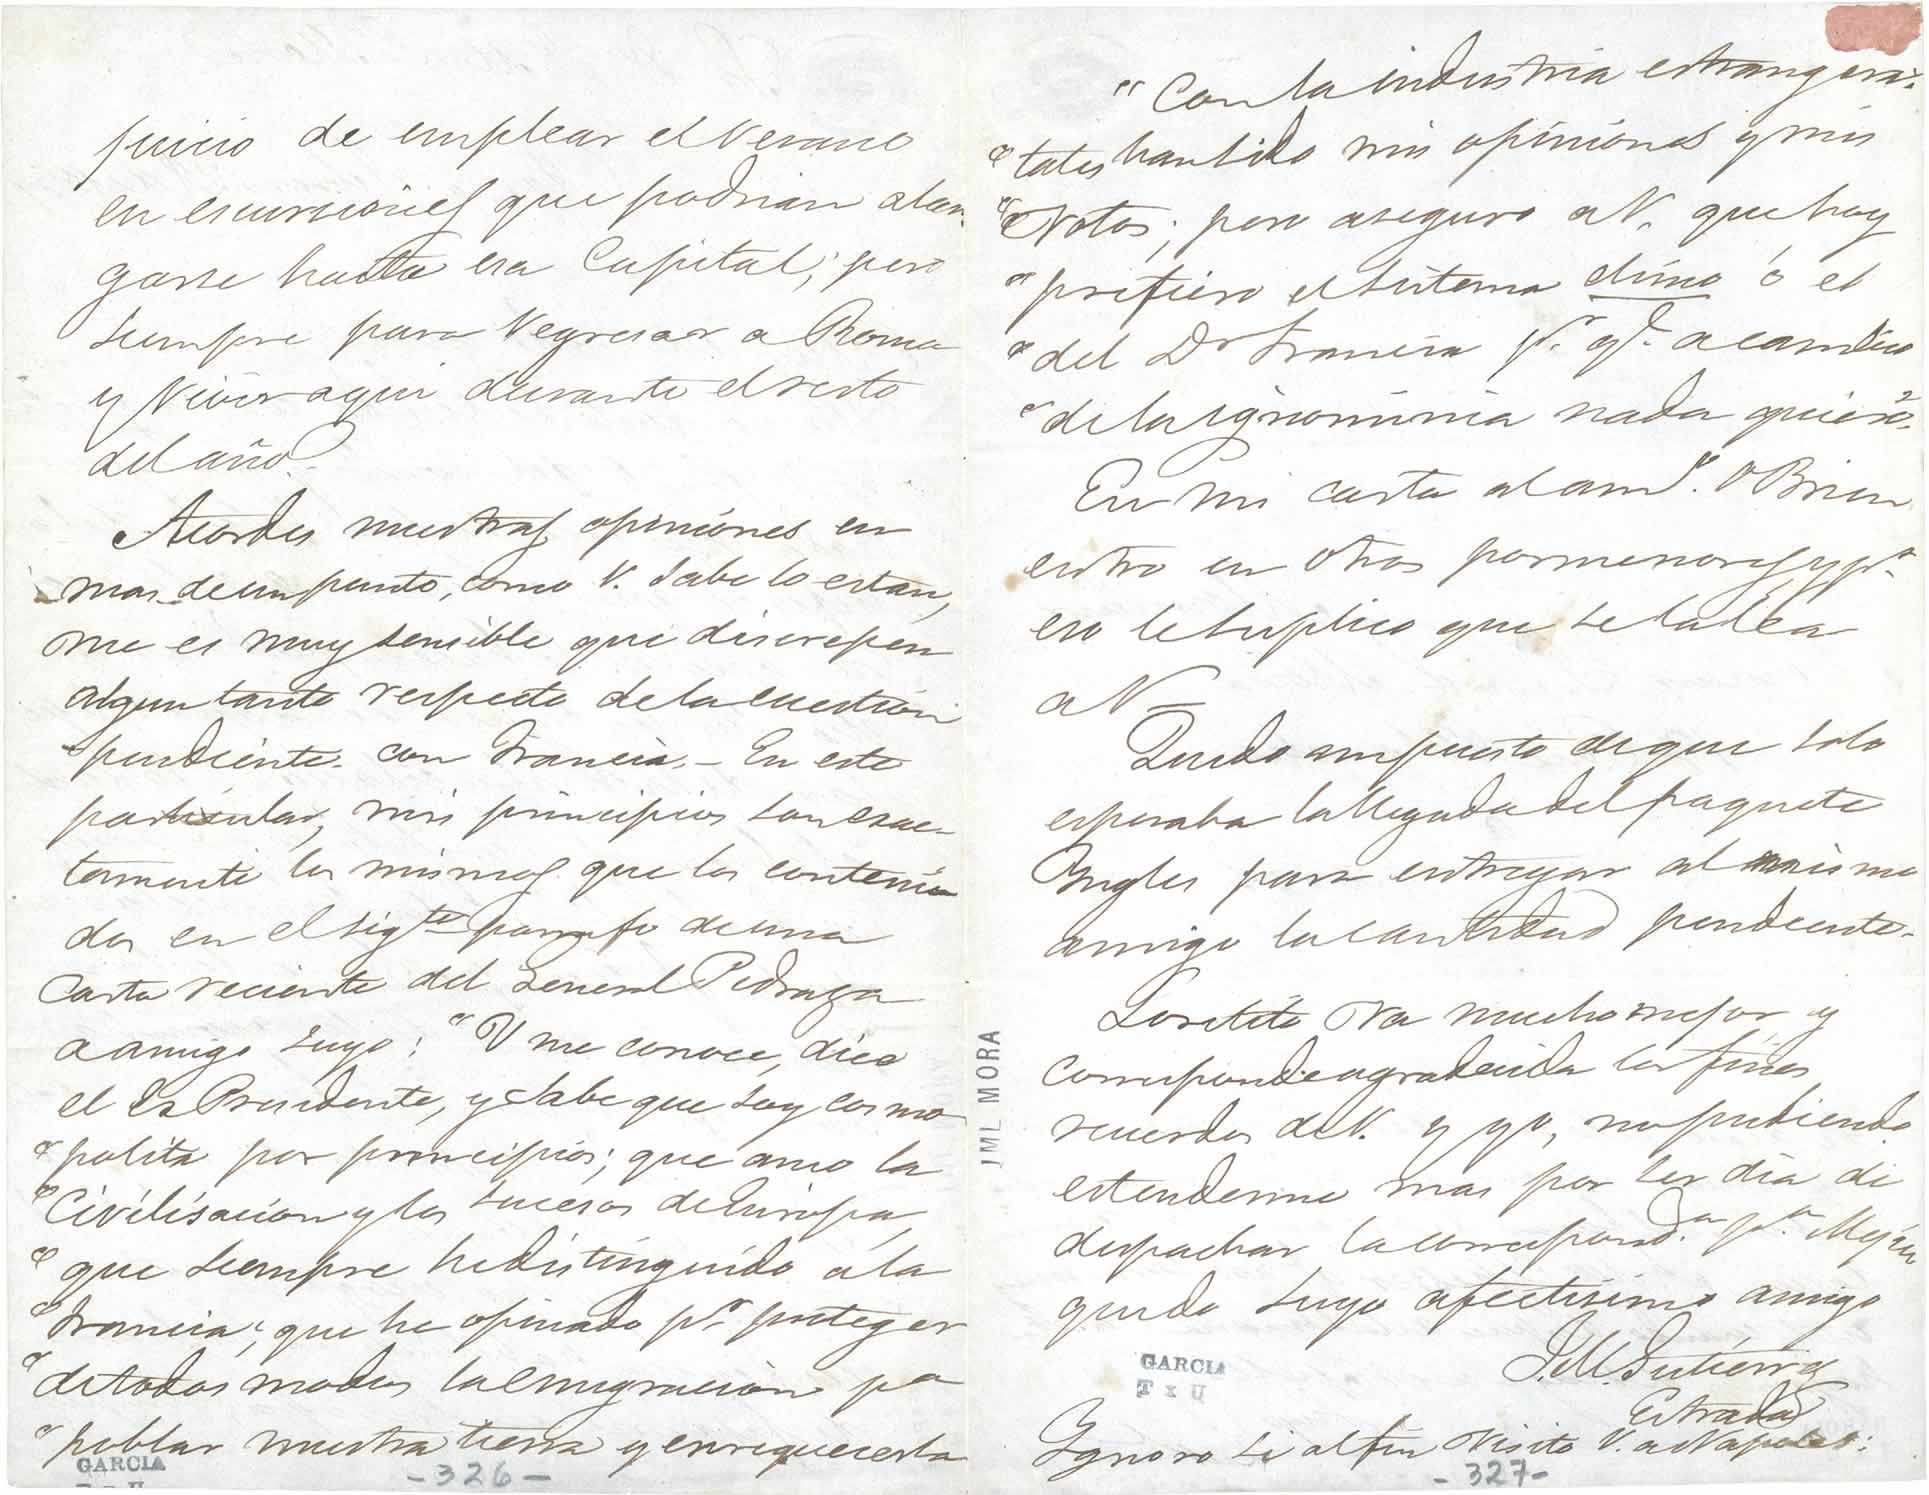 juicio de emplear el Verano
en escursiónes que podrian alar-
garse hasta esa Capital; pero
siempre para regresar a Roma
y vivir aqui durante el resto
del año.
Acordes nuestras opiniónes en
mas de un punto, como V. sabe lo estan,
me es muy sensible que discrepen
algun tanto respecto de la cuestion
pendiente con Francia. – En este
particular, mis principios son exac-
tamente los mismos que los conteni-
dos en el sigte parrafo de una
Carta reciente del General Pedraza
a amigo suyo: "V me conoce, dice
el Ex Presidente, y sabe que soy cosmo-
"polita por principios; que amo la
"Civilisacion y los sucesos de Europa,
"que siempre he distinguido á la
"Francia; que he opinado pr. proteger
"de todos modos la emigracion pa
"poblar nuestra tierra y enriquecerla
GARCIA
- 326 -
"Con la industria estrangera:
"tales han sido mis opiniones y mis
"Votos; pero aseguro a V. que hoy
"prefiero el sistema chino ó el
"del Dr Francia pr. qe. a cambio
"de la ignominia nada quiero".
En mi carta al amo. O Brien
entro en otros pormenores y pr.
eso le suplico que se la lea
a V—
Quedo impuesto de que solo
esperaba la llegada del paquete
Ingles para entregar al mismo
amigo la cantidad pendiente.
Loretito va mucho mejor y
corresponde agradecida los finos
recuerdos de V. y yo, no pudiendo
estenderme mas por ser dia de
despachar la correspond.an pa. Mejico
quedo suyo afectisimo amigo
J. M. Gutierrez
Estrada
Ignoro si al fin visitó V. a Napoles:
JML MORA
GARCIA
T x U
- 327 -